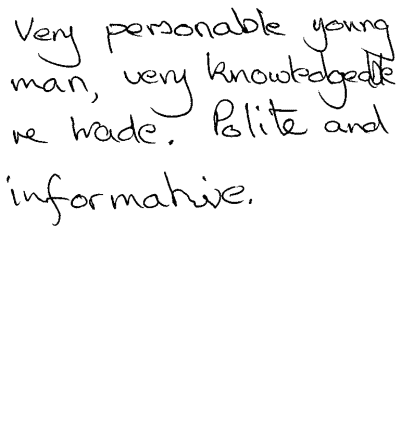 Very personable young
man, very knowledgeable
re trade. Polite and
informative.